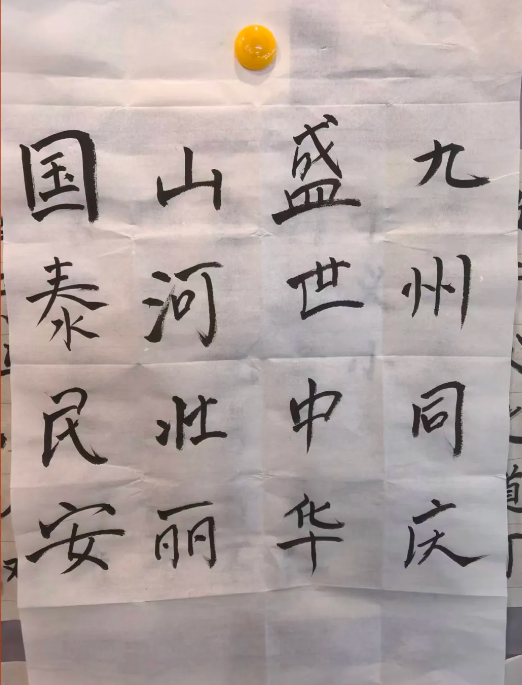 九州同庆
盛世中华
山河壮丽
国泰民安